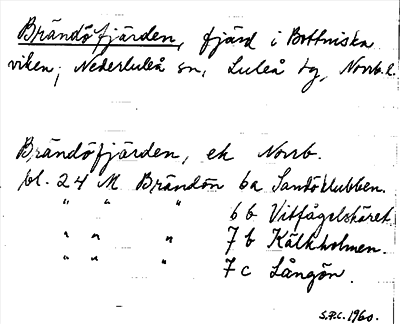 Brändöfjärden, fjärd i Bottniska
viken, Nederluleå sn, Luleå tg, Norrb. l.
Brändöfjärden, ek Norrb.
bl. 24 M Brändön 6a Sandöklubben.
" " " 6 b Vitfågelskäret
" " " 7 b Kälkholmen.
" " " 7 c Långön.
S.P.C. 1960.